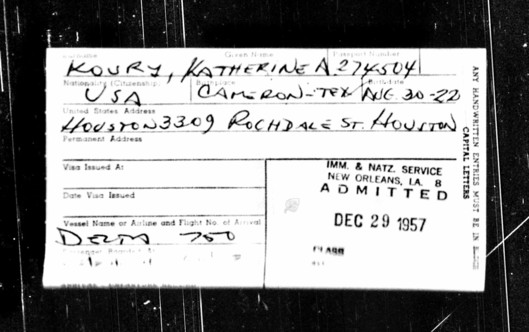 Given Name Passport Number
KOURY, KATHERINE A 274504
Nationality (Citizenship) Birthplace Birthdate
USA CAMERON-TEX AUG 30-22
United States Address
HOUSTON 3309 ROCHDALE ST. HOUSTON
Permanent Address
Visa Issued At
Date Visa Issued
Vessel Name or Airline and Flight No. of Arrival
DELTA 750
IMM. & NATZ. SERVICE
NEW ORLEANS, LA. 8
ADMITTED
DEC 29 1957
CLASS
ANY HANDWRITTEN ENTRIES MUST BE IN
CAPITAL LETTERS